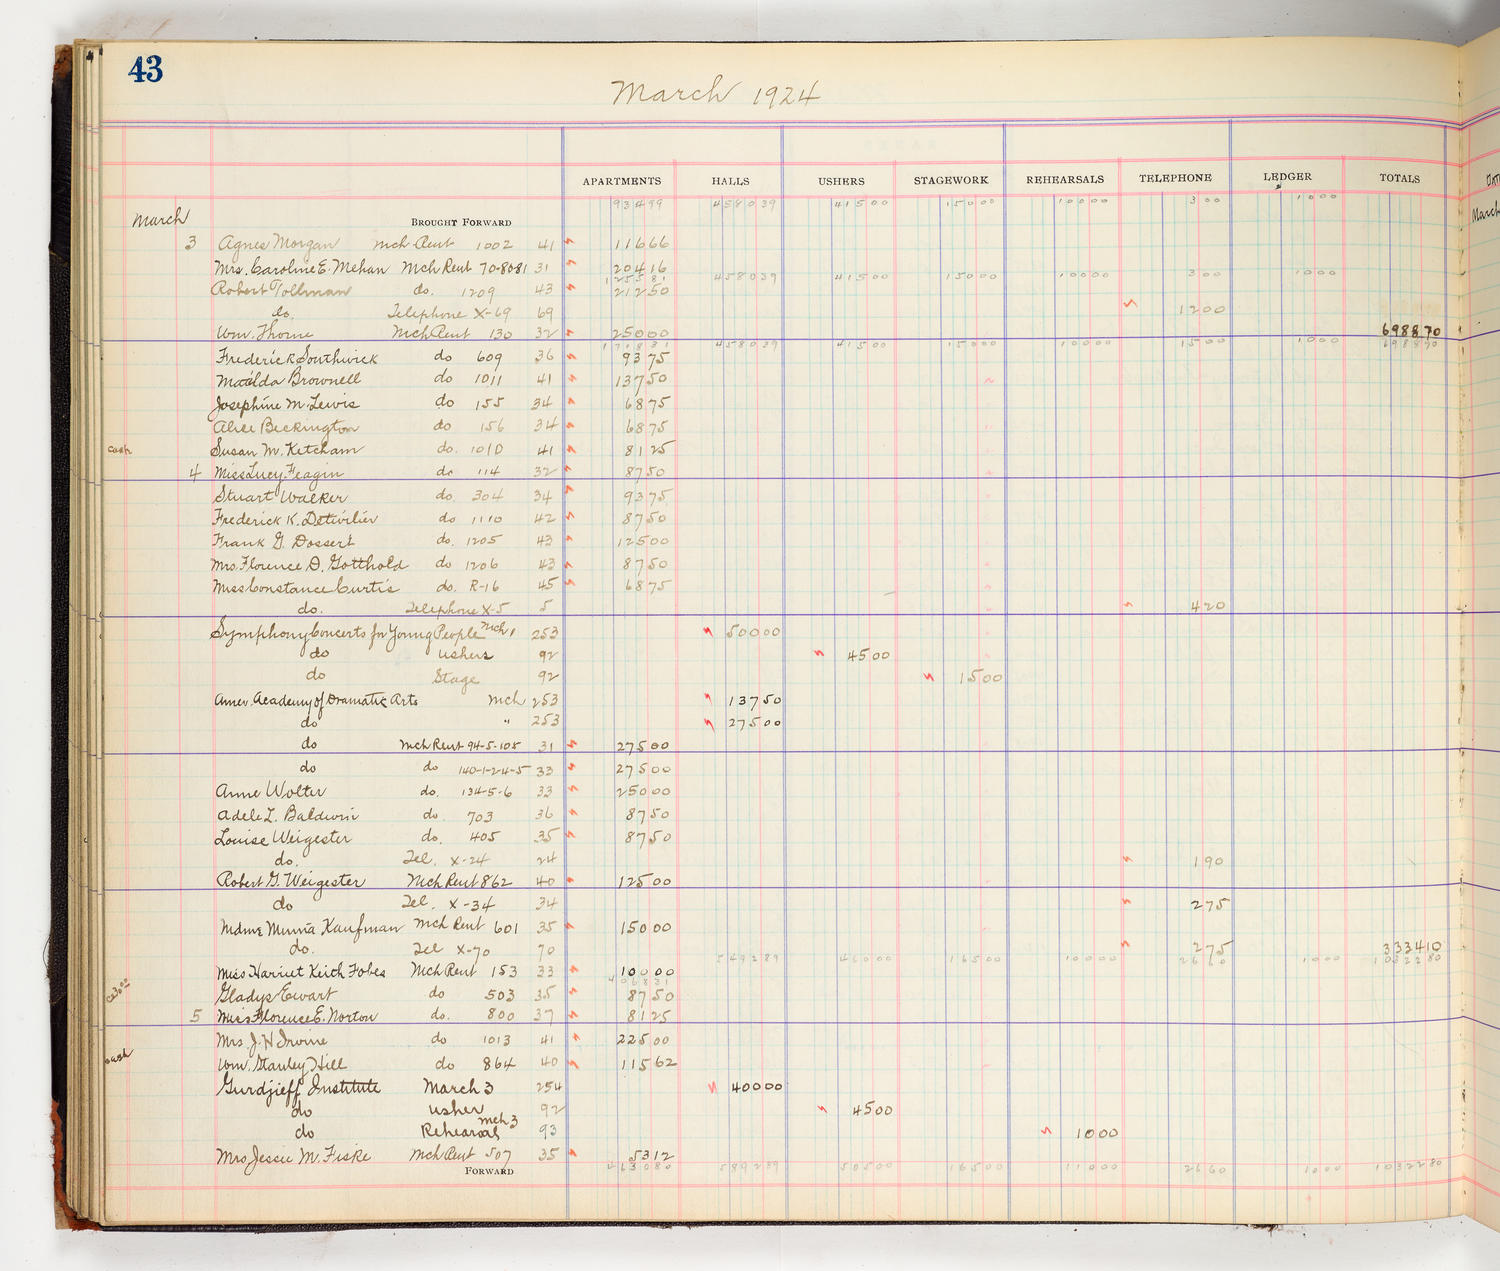 43
March 1924
APARTMENTS HALLS USHERS STAGEWORK REHEARSALS TELEPHONE LEDGER TOTALS
93499 458039 41500 15000 10000 300 1000
March BROUGHT FORWARD
3 Agnes Morgan Mch Rent 1002 41 11666
Mrs. Caroline E. Mehan Mch Rent 70-80-81 31 20416
125581 458039 41500 15000 10000 300 1000
Robert Tollman do. 1209 43 21250
do. Telephone X-69 69 1200
Wm. Thorne Mch Rent 130 32 25000 698870
171831 458039 41500 15000 10000 1500 1000 698870
Frederick Southwick do 609 36 9375
Matilda Brownell do 1011 41 13750
Josephine M. Lewis do 155 34 6875
Alice Beckington do 156 34 6875
cash Susan M. Ketcham do. 1010 41 8125
4 Miss Lucy Feagin do 114 32 8750
Stuart Walker do. 304 34 9375
Frederick K. Detwilier do 1110 42 8750
Frank G. Dossert do. 1205 43 12500
Mrs. Florence D. Gotthold do 1206 43 8750
Miss Constance Curtis do. R-16 45 6875
do. Telephone X-5 5 420
Symphony Concerts for Young People Mch 1 253 50000
do Ushers 92 4500
do Stage 92 1500
Amer. Academy of Dramatic Arts Mch 253 13750
do " 253 27500
do Mch Rent 94-5-105 31 27500
do do 140-1-2-4-5 33 27500
Anne Wolter do. 134-5-6 33 25000
Adele L. Baldwin do. 703 36 8750
Louise Weigester do. 405 35 8750
do. Tel. X-24 24 190
Robert G. Weigester Mch Rent 862 40 12500
do Tel. X-34 34 275
Mdme Minna Kaufman Mch Rent 601 35 15000
do. Tel X-70 70 275 333410
549289 46000 16500 10000 2660 1000 1032280
Miss Harriet Keith Fobes Mch Rent 153 33 10000
406831
Gladys Ewart do 503 35 8750
5 Miss Florence E. Norton do. 800 37 8125
Mrs. J. H. Irvine do 1013 41 22500
cash Wm. Stanley Hill do 864 40 11562
Gurdjieff Institute March 3 254 40000
do Usher 92 4500
do Rehearsal Mch 3 93 1000
Mrs Jessie M. Fiske Mch Rent 507 35 5312
FORWARD 463080 589289 50500 16500 11000 2660 1000 1032280
March